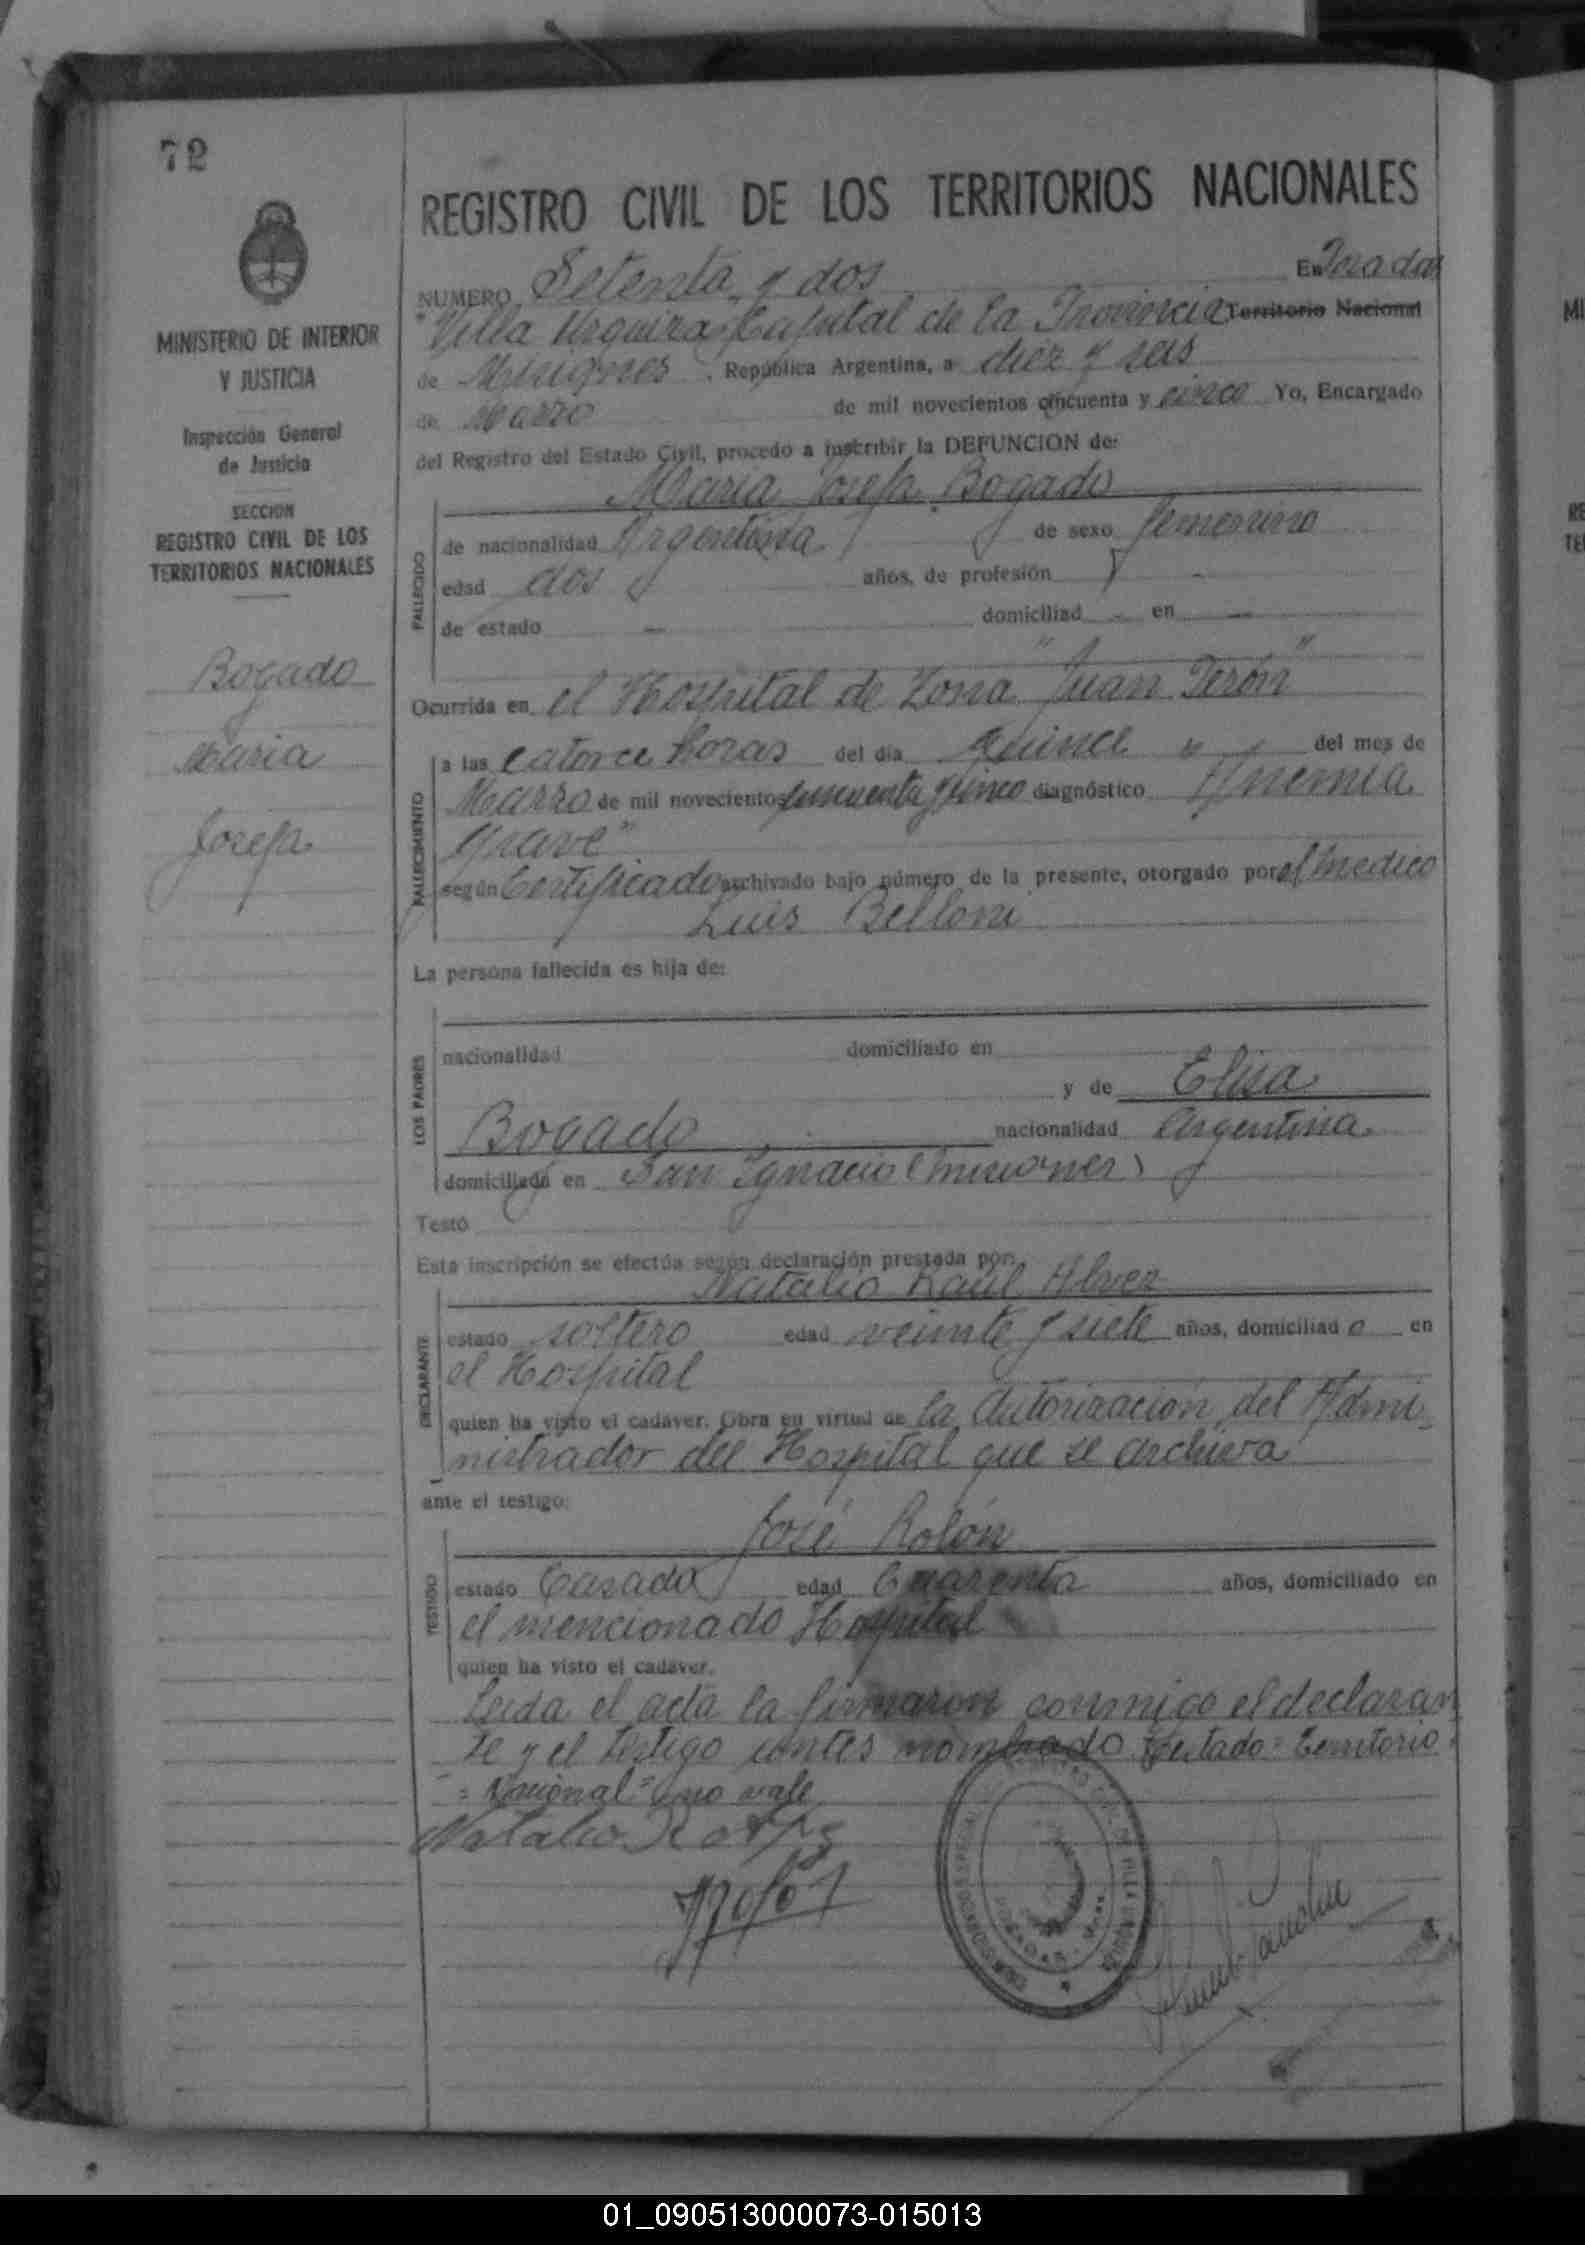 72
MINISTERIO DE INTERIOR
Y JUSTICIA
Inspección General
de Justicia
SECCION
REGISTRO CIVIL DE LOS
TERRITORIOS NACIONALES
Bogado
Maria
Josefa
REGISTRO CIVIL DE LOS TERRITORIOS NACIONALES
NUMERO Setenta y dos En Posadas
"Villa Urquiza" Capital de la Provincia Territorio Nacional
de Misiones, República Argentina, a diez y seis
de Marzo de mil novecientos cincuenta y cinco Yo, Encargado
del Registro del Estado Civil, procedo a inscribir la DEFUNCION de:
Maria Josefa Bogado
FALLECIDO
de nacionalidad Argentina de sexo femenino
edad dos años, de profesión -
de estado - domiciliad - en -
Ocurrida en el Hospital de Zona "Juan Perón"
FALLECIMIENTO
a las catorce horas del día quince " del mes de
Marzo de mil novecientos cincuenta y cinco diagnóstico "Anemia
grave"
según Certificado archivado bajo número de la presente, otorgado por el medico
Luis Belloni
La persona fallecida es hija de:
LOS PADRES
nacionalidad domiciliado en
y de Elisa
Bogado nacionalidad argentina
domiciliada en San Ignacio (Misiones)
Testó
Esta inscripción se efectúa según declaración prestada por:
Natalio Raúl Alvez
DECLARANTE
estado soltero edad veinte y siete años, domiciliado en
el Hospital
quien ha visto el cadáver. Obra en virtud de la Autorización del Admi
nistrador del Hospital que se archiva
ante el testigo:
José Rolón
TESTIGO
estado Casado edad Cuarenta años, domiciliado en
el mencionado Hospital
quien ha visto el cadáver.
Leida el acta la firmaron conmigo el declaran
te y el testigo antes nombrado. Testado = Territorio
= Nacional = no vale
Natalio R
JRolón
01_090513000073-015013